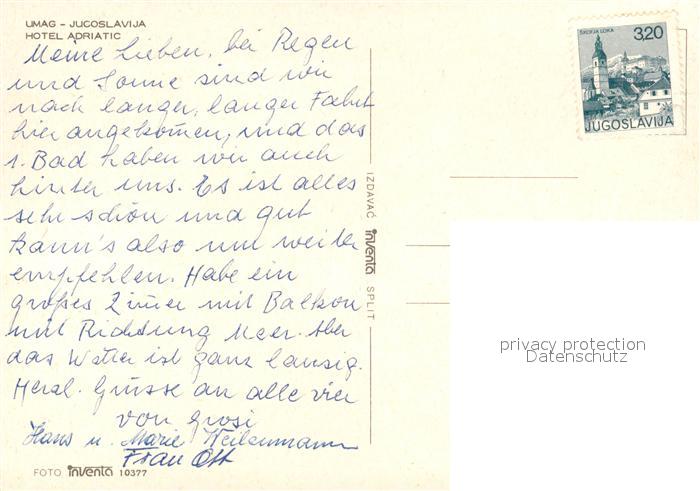 UMAG - JUGOSLAVIJA
HOTEL ADRIATIC
Meine Lieben, bei Regen
und Sonne sind wir
nach langer, langer Fahrt
hier angekommen, und das
1. Bad haben wir auch
hinter uns. Es ist alles
sehr schön und gut
kann's also nur weiter
empfehlen. Habe ein
großes Zimmer mit Balkon
mit Richtung Meer. Aber
das Wetter ist ganz lausig.
Herzl. Grüsse an alle vier
von Grosi
Hans u. Marie Weilenmann
Frau Ott
FOTO inventa 10377
IZDAVAČ inventa SPLIT
ŠKOFJA LOKA
3,20
JUGOSLAVIJA
privacy protection
Datenschutz